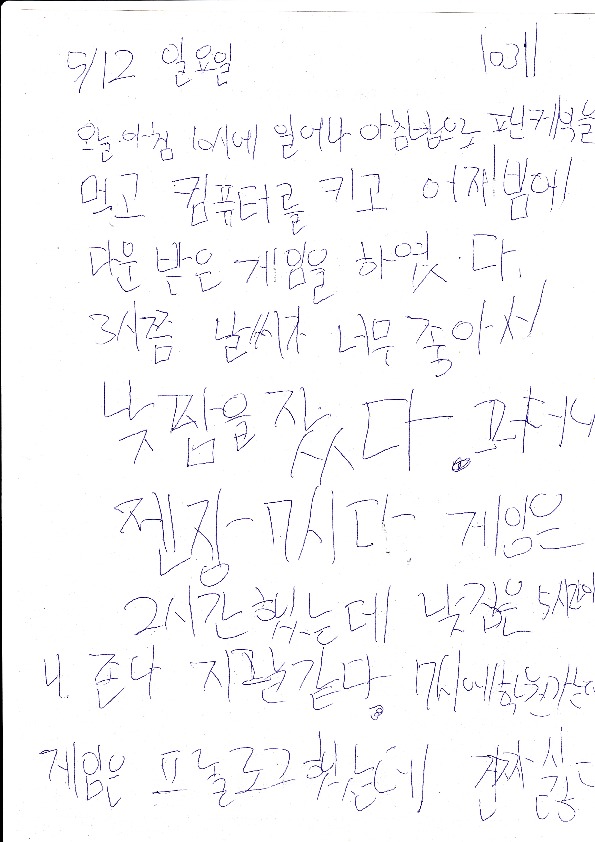 5/12 일요일 10311
오늘 아침 10시에 일어나 아침밥으로 팬케익을
먹고 컴퓨터를 키고 어재밤에
다운 받은 게임을 하였다.
3시쯤 날씨가 너무 좋아서
낮잠을 잤다.
젠장 7시다 게임은
2시간 했는데 낮잠은 5시간이
네. 존나 지랄같다. 7시에 학원가는데
게임은 프롤로그 했는데 진짜